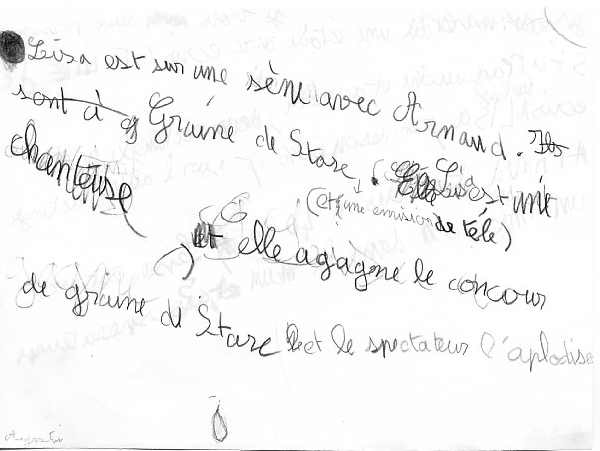 Léisa est sur une sène avec Arnaud. Ils
sont à Graine de Stare. Léisa est une
chanteuse
(et une emision de télé)
Et elle a gagne le concour
de graine de Stare et le spectateur l'aplodise